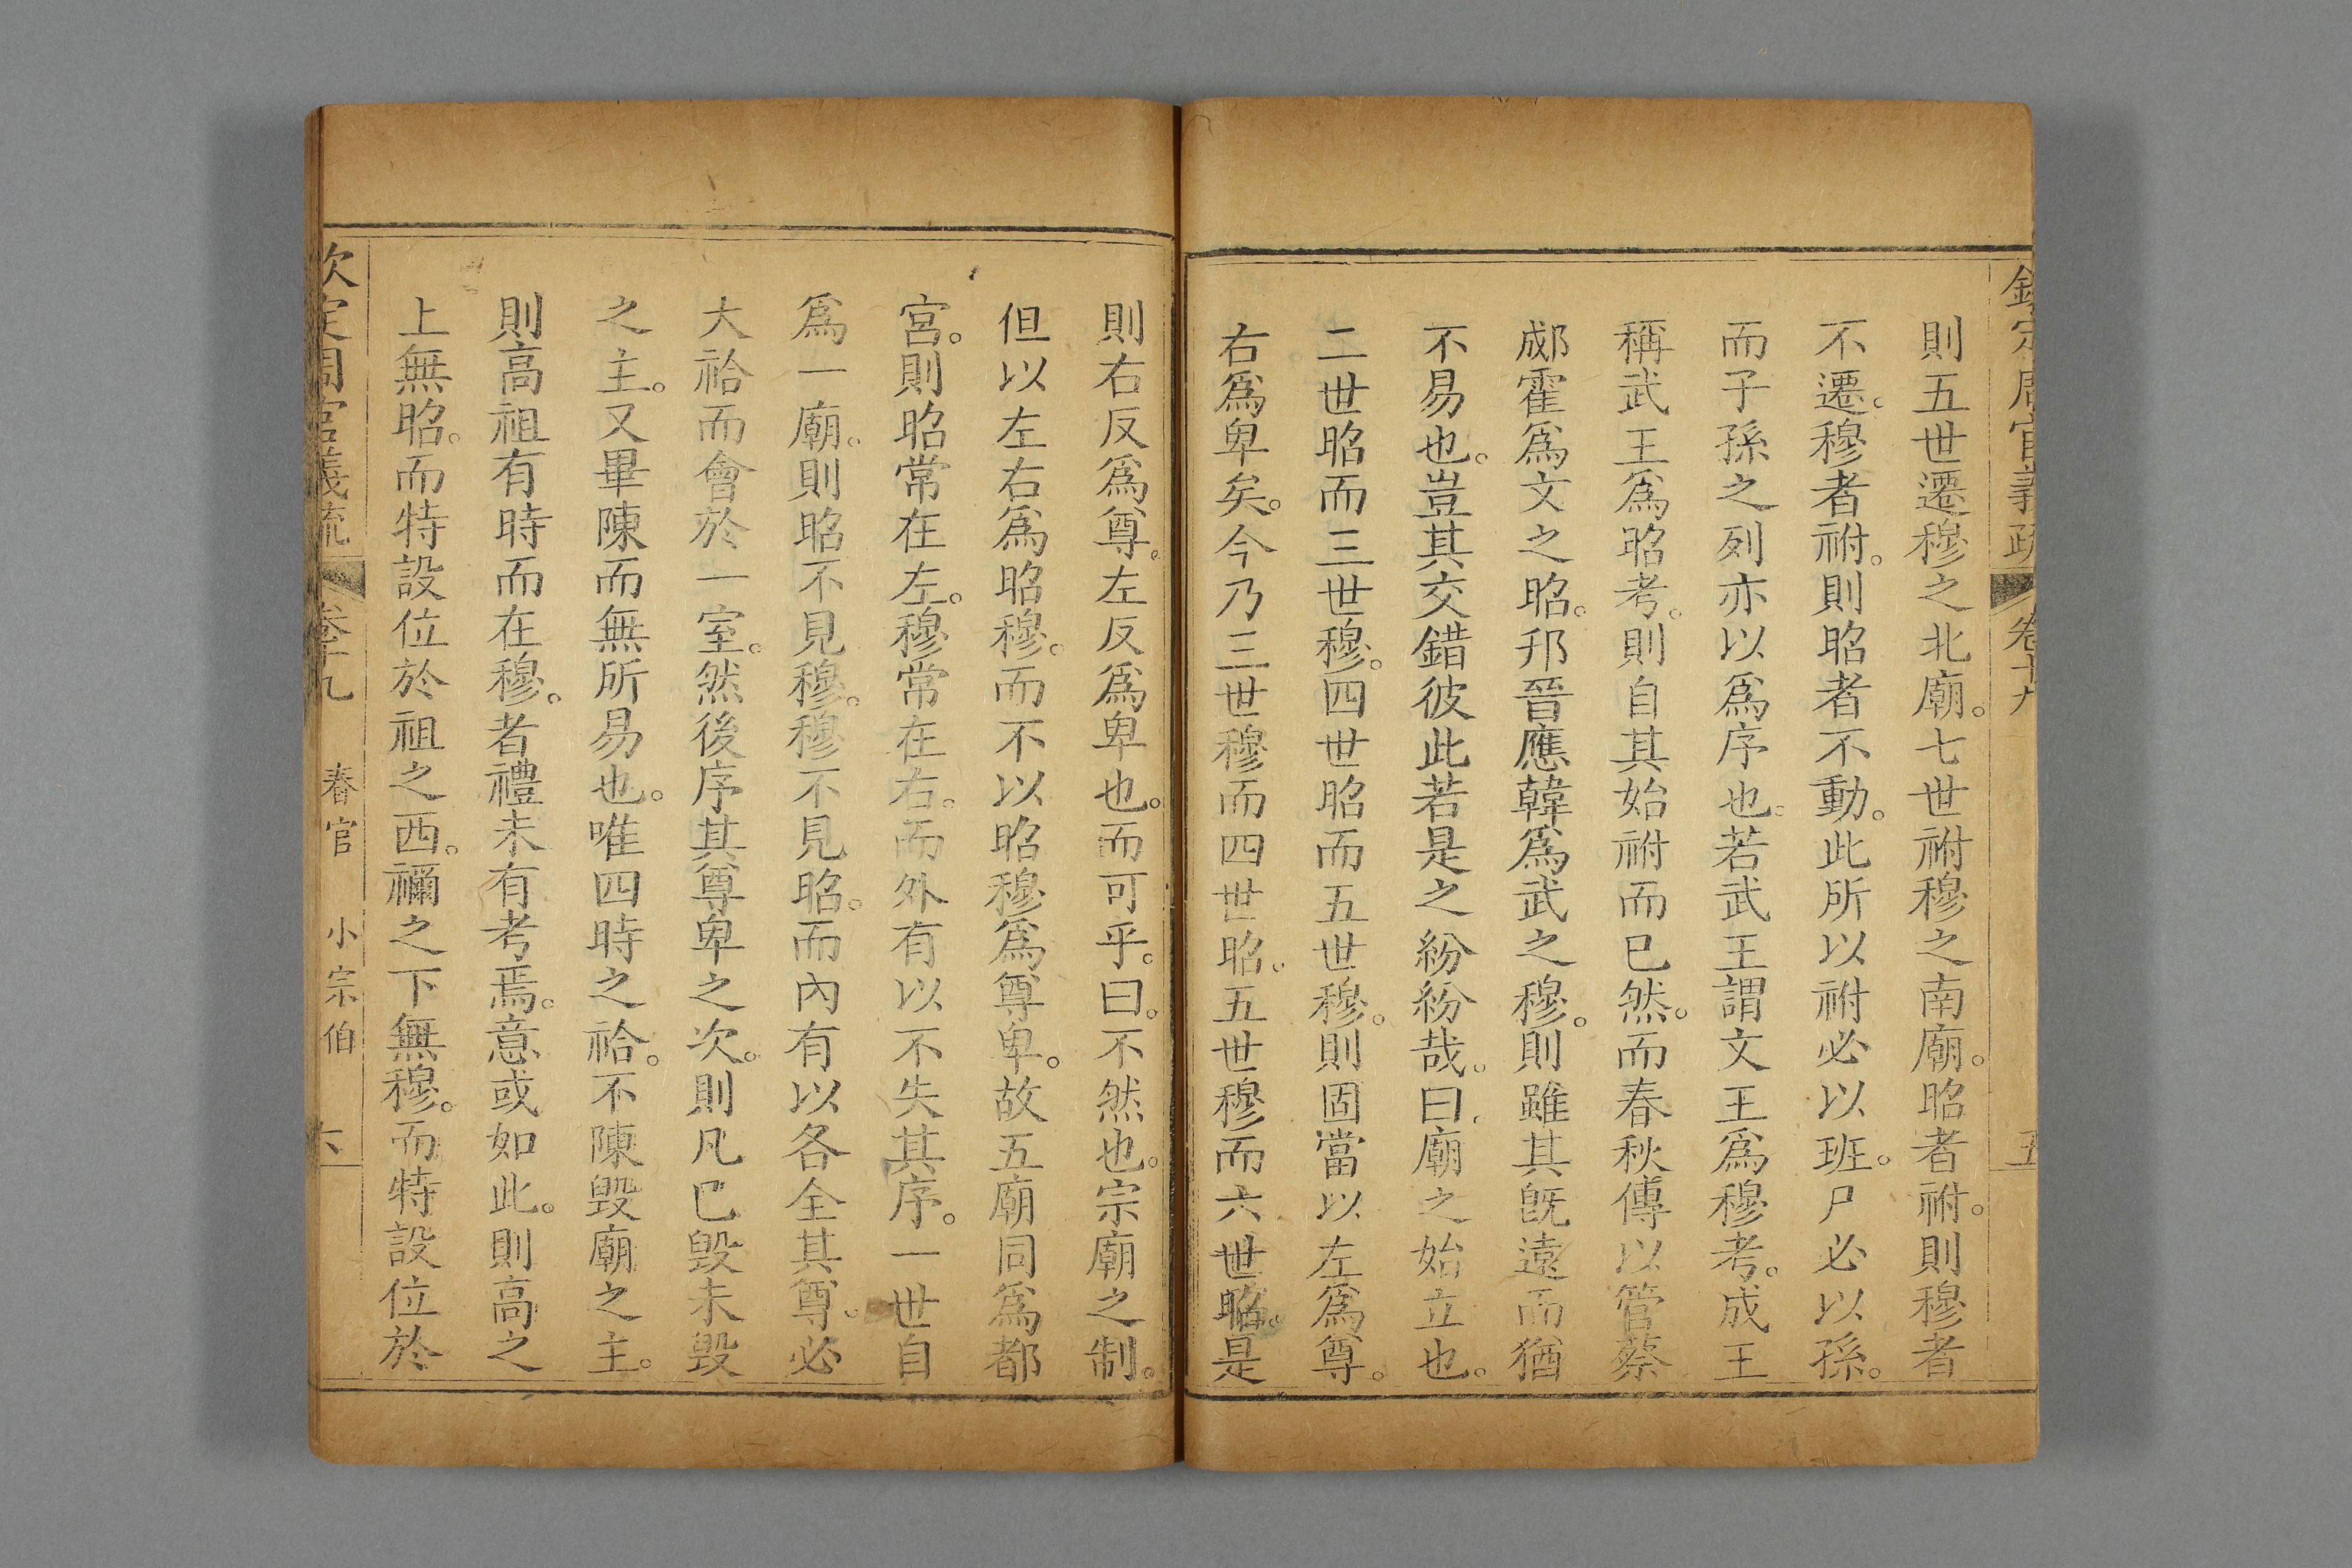 欽定周官義疏 卷十九 五
則五世遷穆之北廟。七世祔穆之南廟。昭者祔。則穆者
不遷。穆者祔。則昭者不動。此所以祔必以班。尸必以孫。
而子孫之列亦以爲序也。若武王謂文王爲穆考。成王
稱武王爲昭考。則自其始祔而已然。而春秋傳以管蔡
郕霍爲文之昭。邘晉應韓爲武之穆。則雖其旣遠而猶
不易也。豈其交錯彼此若是之紛紛哉。曰。廟之始立也。
二世昭而三世穆。四世昭而五世穆。則固當以左爲尊。
右爲卑矣。今乃三世穆而四世昭。五世穆而六世昭。是
則右反爲尊。左反爲卑也。而可乎。曰。不然也。宗廟之制。
但以左右爲昭穆。而不以昭穆爲尊卑。故五廟同爲都
宮。則昭常在左。穆常在右。而外有以不失其序。一世自
爲一廟。則昭不見穆。穆不見昭。而內有以各全其尊。必
大祫而會於一室。然後序其尊卑之次。則凡已毀未毀
之主。又畢陳而無所易也。唯四時之祫。不陳毀廟之主。
則高祖有時而在穆。者禮未有考焉。意或如此。則高之
上無昭。而特設位於祖之西。禰之下無穆。而特設位於
欽定周官義疏 卷十九 春官 小宗伯